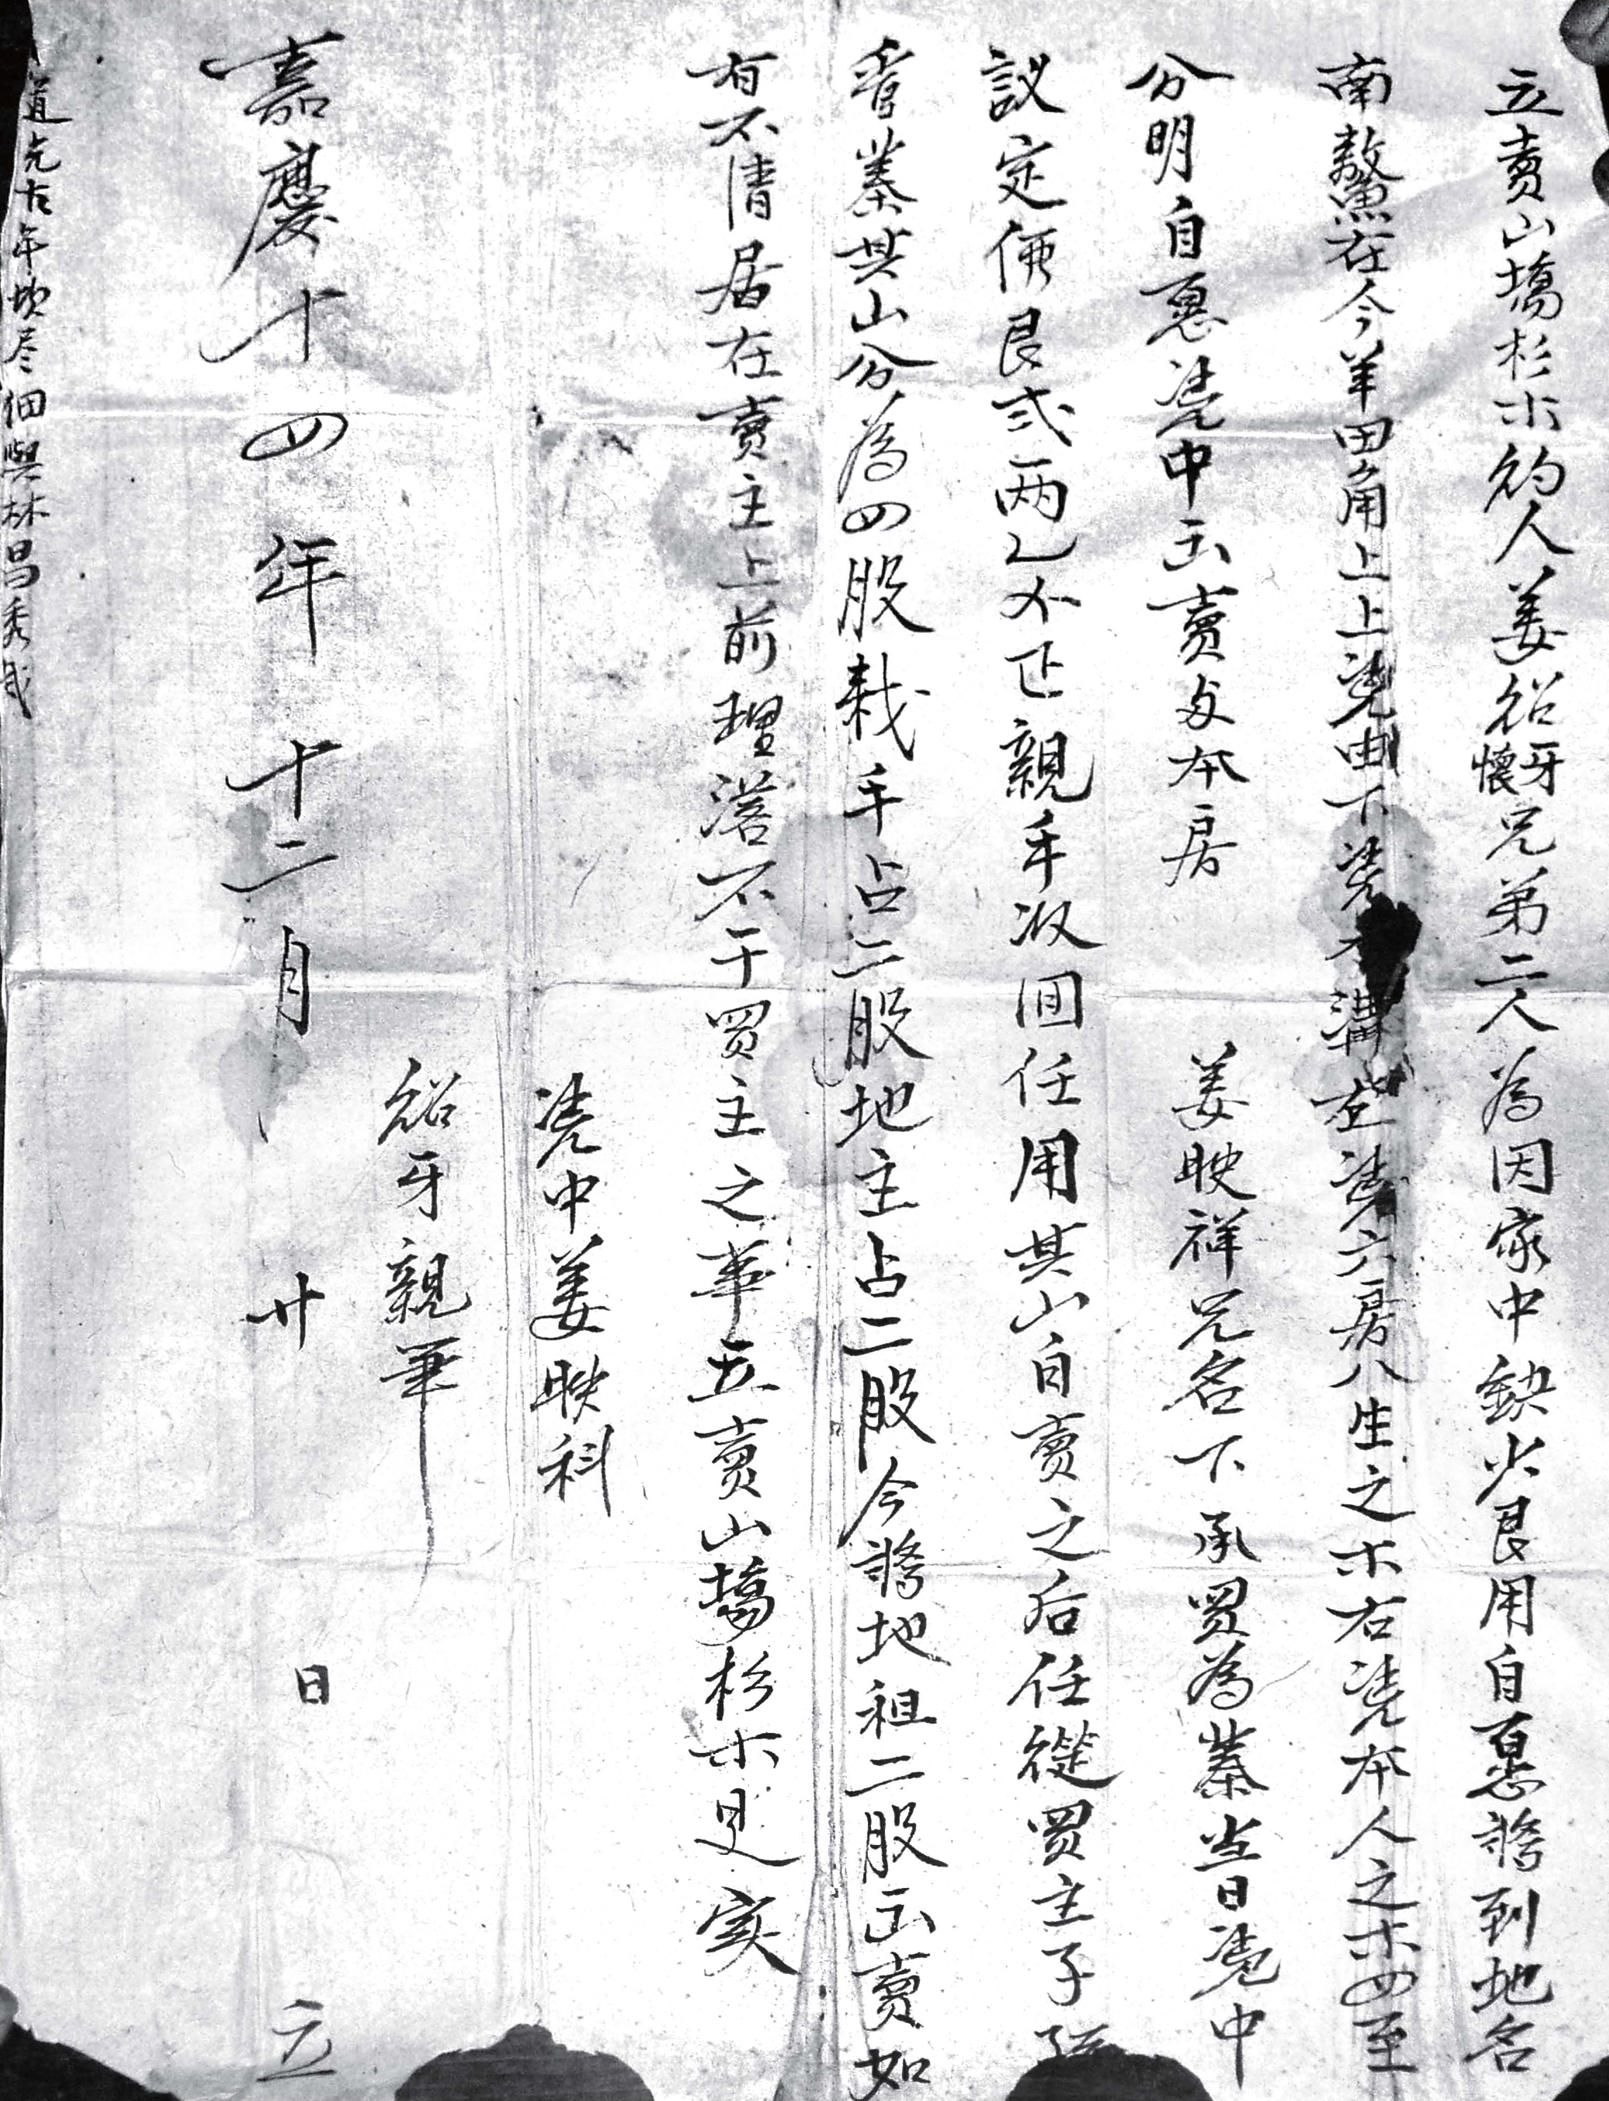 立賣山塲杉木約人姜紹牙懷兄弟二人為因家中缺少艮用自愿將到地名
南鰲在今羊田角上上凴由下凴水溝左凴六房八生之木右凴本人之木四至
分明自愿凴中出賣与本房
姜映祥兄名下承買為業当日凴中
議定價艮弍两乙卜正親手收回任用其山自賣之后任從買主子孫
管業其山分為四股栽手占二股地主占二股今將地祖二股出賣如
有不清居在賣主上前理落不干買主之事立賣山塲杉木是實
凴中姜映科
紹牙親筆
嘉慶十四年十二月廿日立
道光年砍尽佃與林昌秀